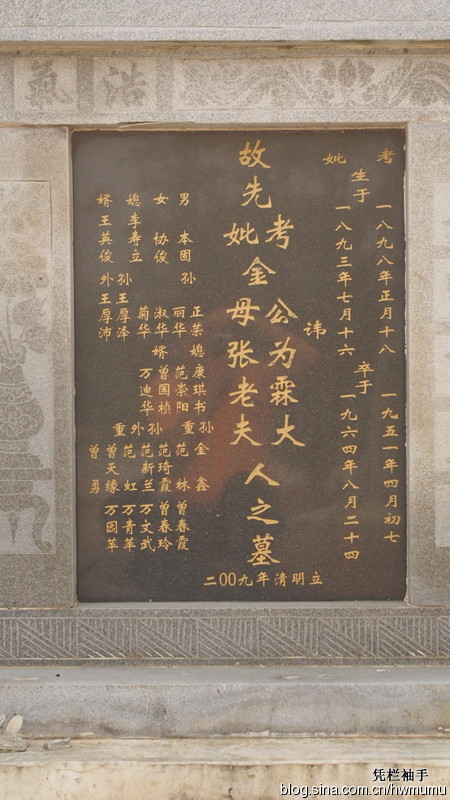 浩氣
考 一八九八年正月十八 一九五一年四月初七
生于 卒于
妣 一八九三年七月十六 一九六四年八月二十四
讳
考 公为霖大
故先 金 人之墓
妣 母张老夫
正荣 媳 康琪书 重孙 金鑫
男 本固 孙 丽华 范崇阳 范林 曾春霞
女 协俊 淑华 婿 曾国桢 重外孙 范琦霞 曾春玲
菊华 万迪华 范新兰 万文武
媳 李寿立 外孙 王厚泽 范虹 万青苹
婿 王英俊 王厚沛 曾天缘 万园苹
曾勇
二00九年清明立
凭栏袖手
blog.sina.com.cn/hwmumu